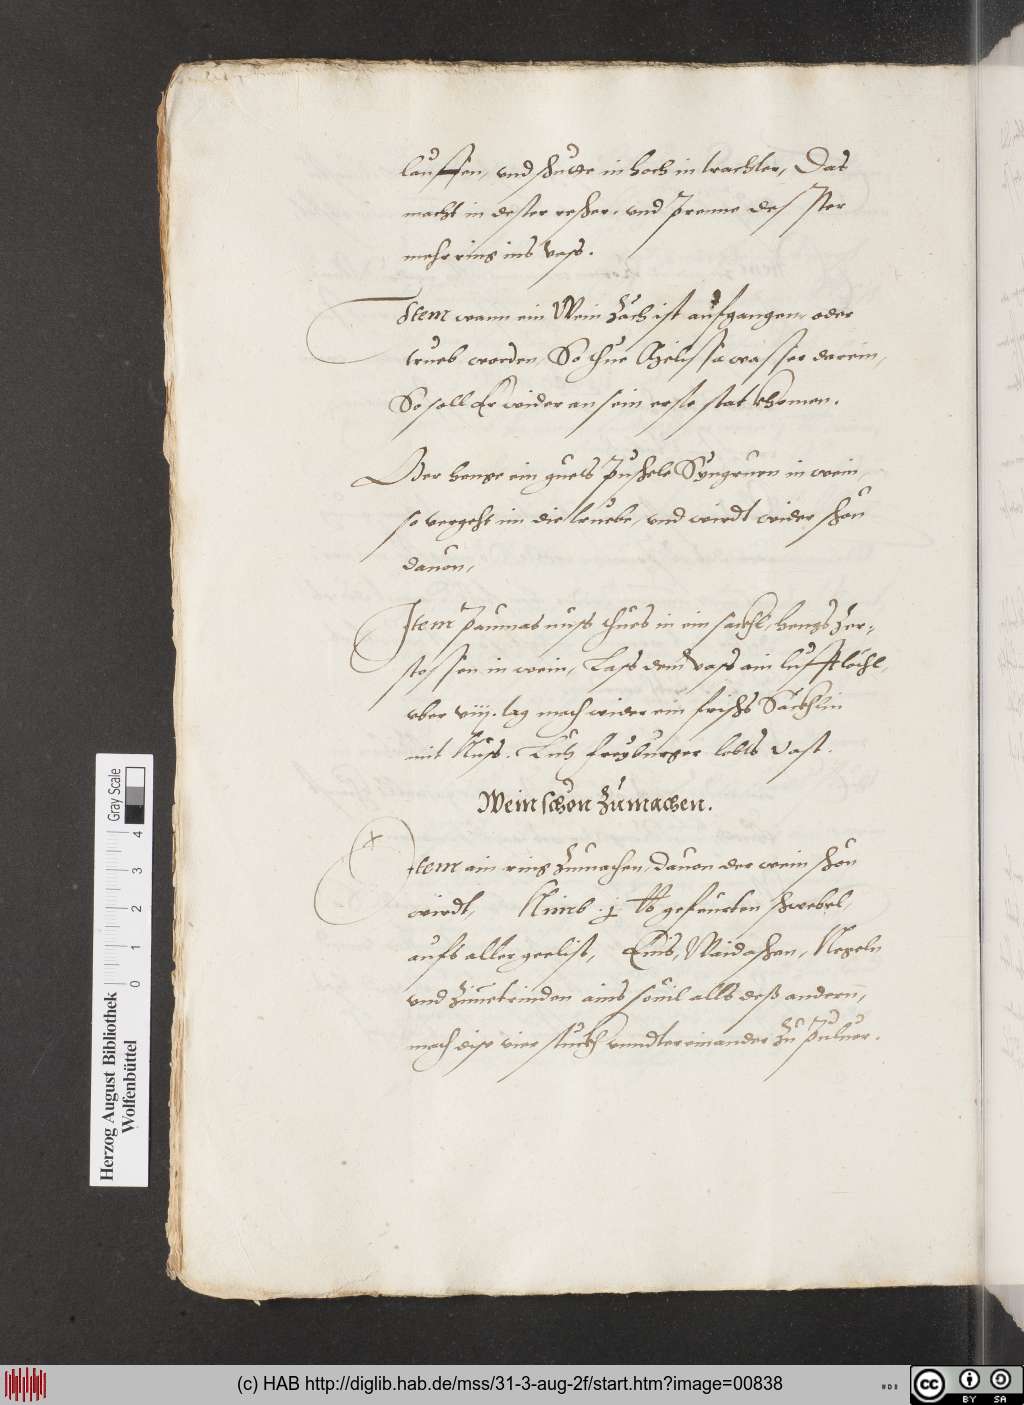 lauffen, und schutte in hoch in trachter, Das
macht in dester rescher. und prenne des Ster
mehr ring ins vass.
Item wann ein Wein Zäch ist aufgangen, oder
trueb worden, So thue wasser darein,
So soll Er wider an sein erste stat khomen.
Oder henge ein guets Püschele Syngruen in wein,
so vergeht im die truebe, und wirdt wider schön
davon,
Item Paumas nuss thues in ein säckhl, hengs Zer-
stossen in wein, Lass dem vass ain lufftlöchl,
uber viij. tag mach wider ein frischs Säckhlin
mit Nuss. freyburger lobts vast.
Wein schön Zumachen.
Item ain ring Zumachen, davon der wein schön
wirdt, Nimb .j. lb geseüerten schwebel,
aufs aller geelist, Enis, Naidaschen, Negeln
und Zimetrinden ains sovil alls deß andern,
mach dise vier stuckh unndtereinander Zu Pulver.
Herzog August Bibliothek
Wolfenbüttel
Gray Scale
0 1 2 3 4
(c) HAB http://diglib.hab.de/mss/31-3-aug-2f/start.htm?image=00838
cc BY SA